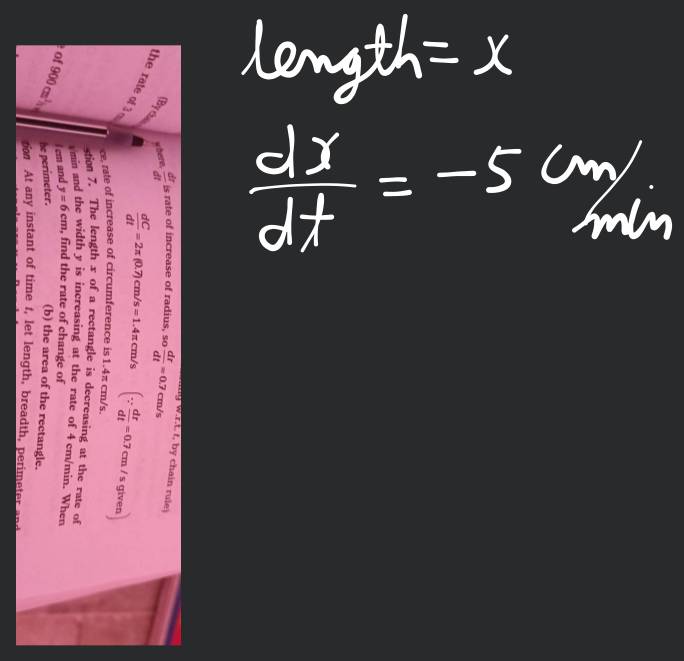 length = x
dx/dt = -5 cm/min
the rate of 3
of 900 cm
where, dr/dt is rate of increase of radius, so dr/dt = 0.7 cm/s
w.r.t. t, by chain rule)
dC/dt = 2π (0.7) cm/s = 1.4π cm/s (∵ dr/dt = 0.7 cm / s given)
rate of increase of circumference is 1.4π cm/s.
stion 7. The length x of a rectangle is decreasing at the rate of
/min and the width y is increasing at the rate of 4 cm/min. When
cm and y = 6 cm, find the rate of change of
he perimeter. (b) the area of the rectangle.
tion At any instant of time t, let length, breadth, perimeter and